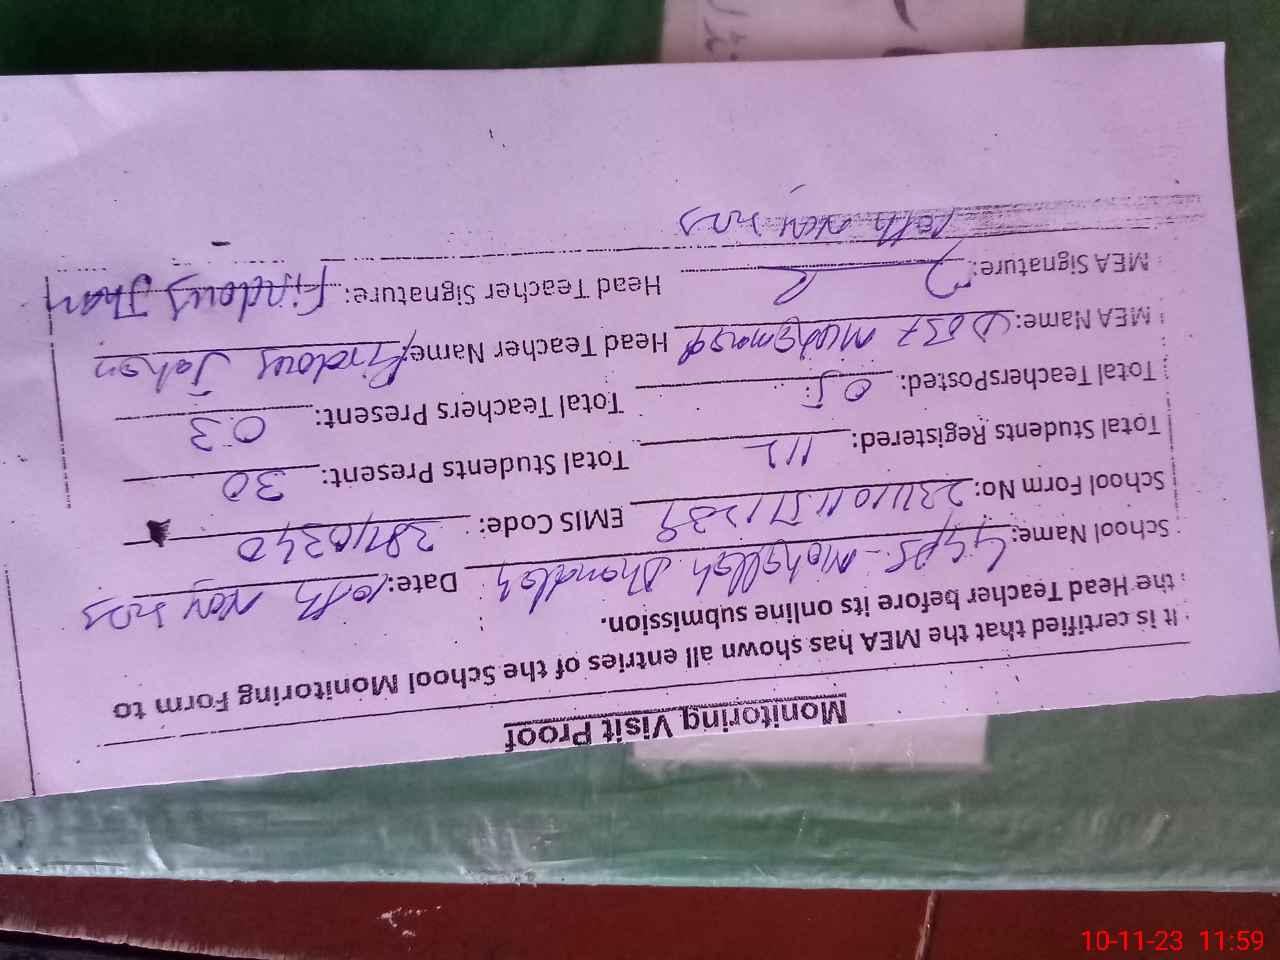 Monitoring Visit Proof
It is certified that the MEA has shown all entries of the School Monitoring Form to
the Head Teacher before its online submission.
School Name: GGPS - Mohallah Date: 10th Nov
School Form No: EMIS Code: 38710340
Total Students Registered: 112 Total Students Present: 30
Total TeachersPosted: 05 Total Teachers Present: 03
MEA Name: Dost Muhammad Head Teacher Name: Firdous Jahan
MEA Signature: Head Teacher Signature: Firdous Jhan
10th Nov
10-11-23 11:59